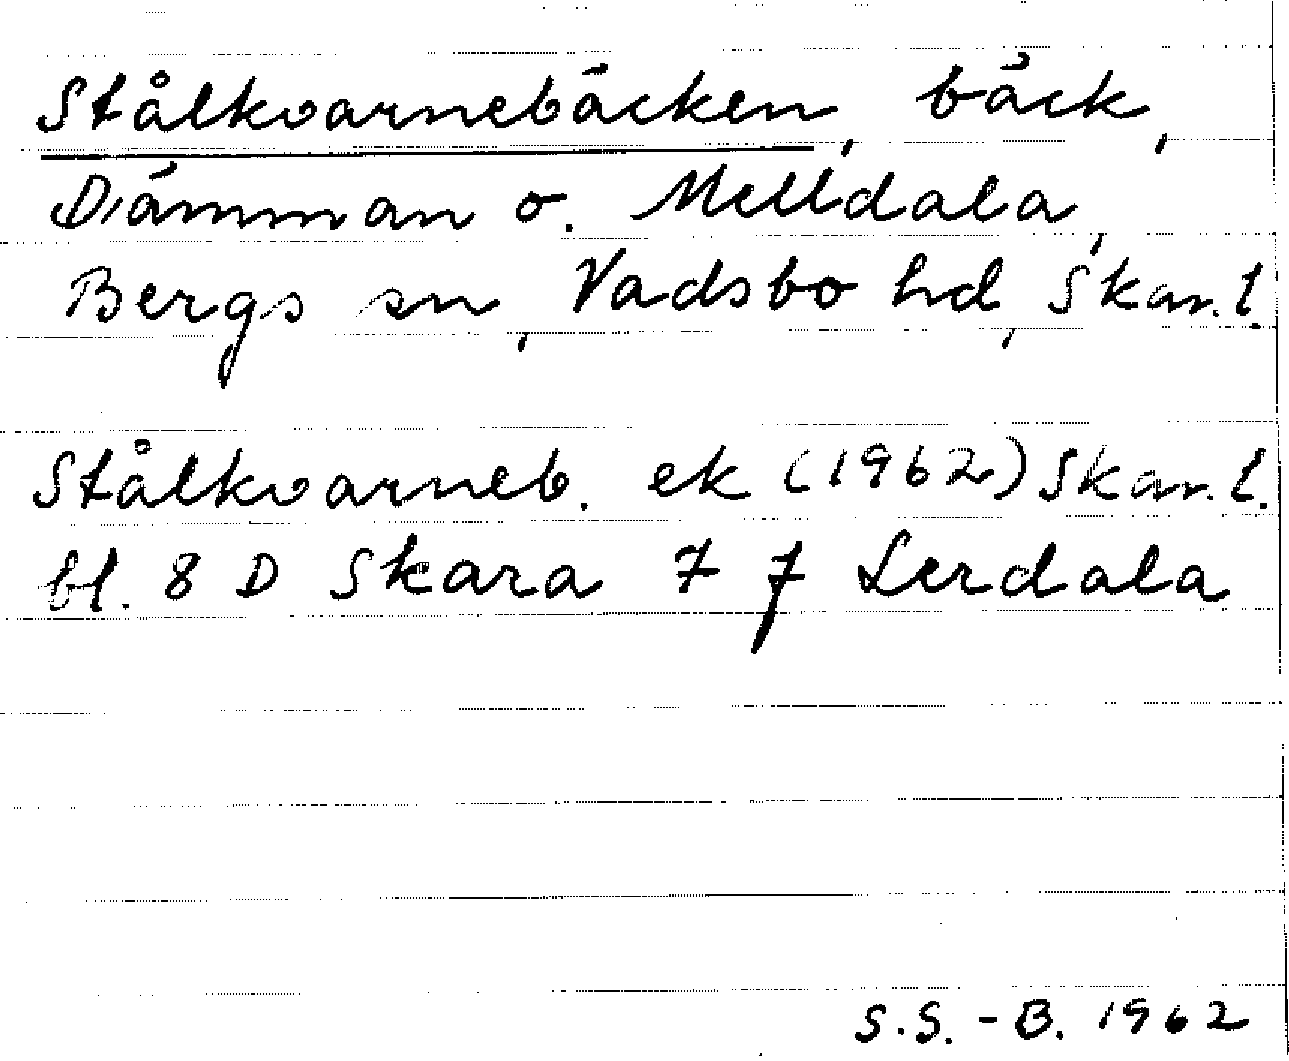 Stålkvarnebäcken, bäck,
Djämman o. Melldala,
Bergs sn, Vadsbo hd, Skar. l.
Stålkvarneb. ek (1962) Skar. l.
bl. 8 D Skara 7 f Lerdala
S.S.-B. 1962